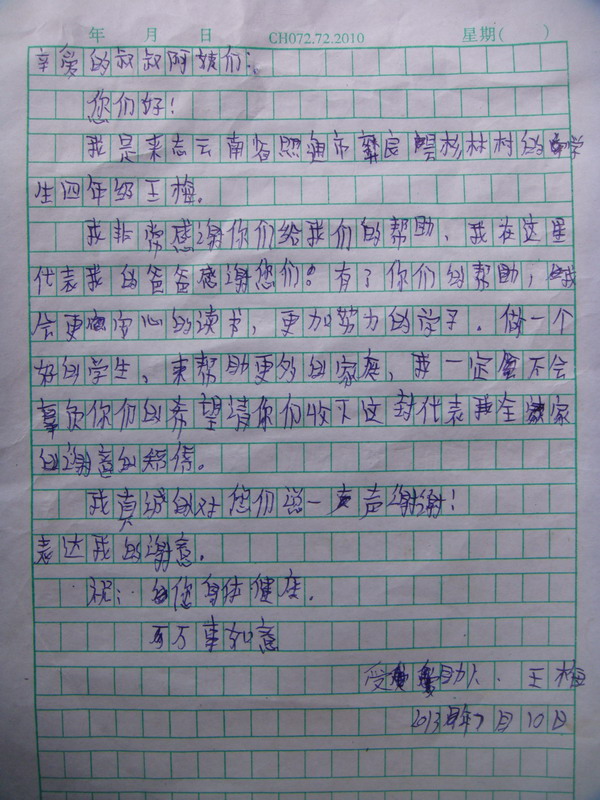 年 月 日 CH072.72.2010 星期( )
辛爱的叔叔阿姨们：
您们好！
我是来志云南省照通市彝良 杉林村的学
生四年级王梅。
我非常感谢你们给我们的帮助、我在这里
代表我的爸爸感谢您们。有了你们的帮助，我
会更 安心的读书，更加努力的学子．做一个
好的学生、来帮助更多的家庭，我一定 不会
辜负你们的希望请你们收下这封代表我全 家
的谢意的 信。
我真诚的对您们说一 声谢谢！
表达我的谢意．
祝：的您身体健庄．
万万事如意
受 助人．王梅
2013年7月10日